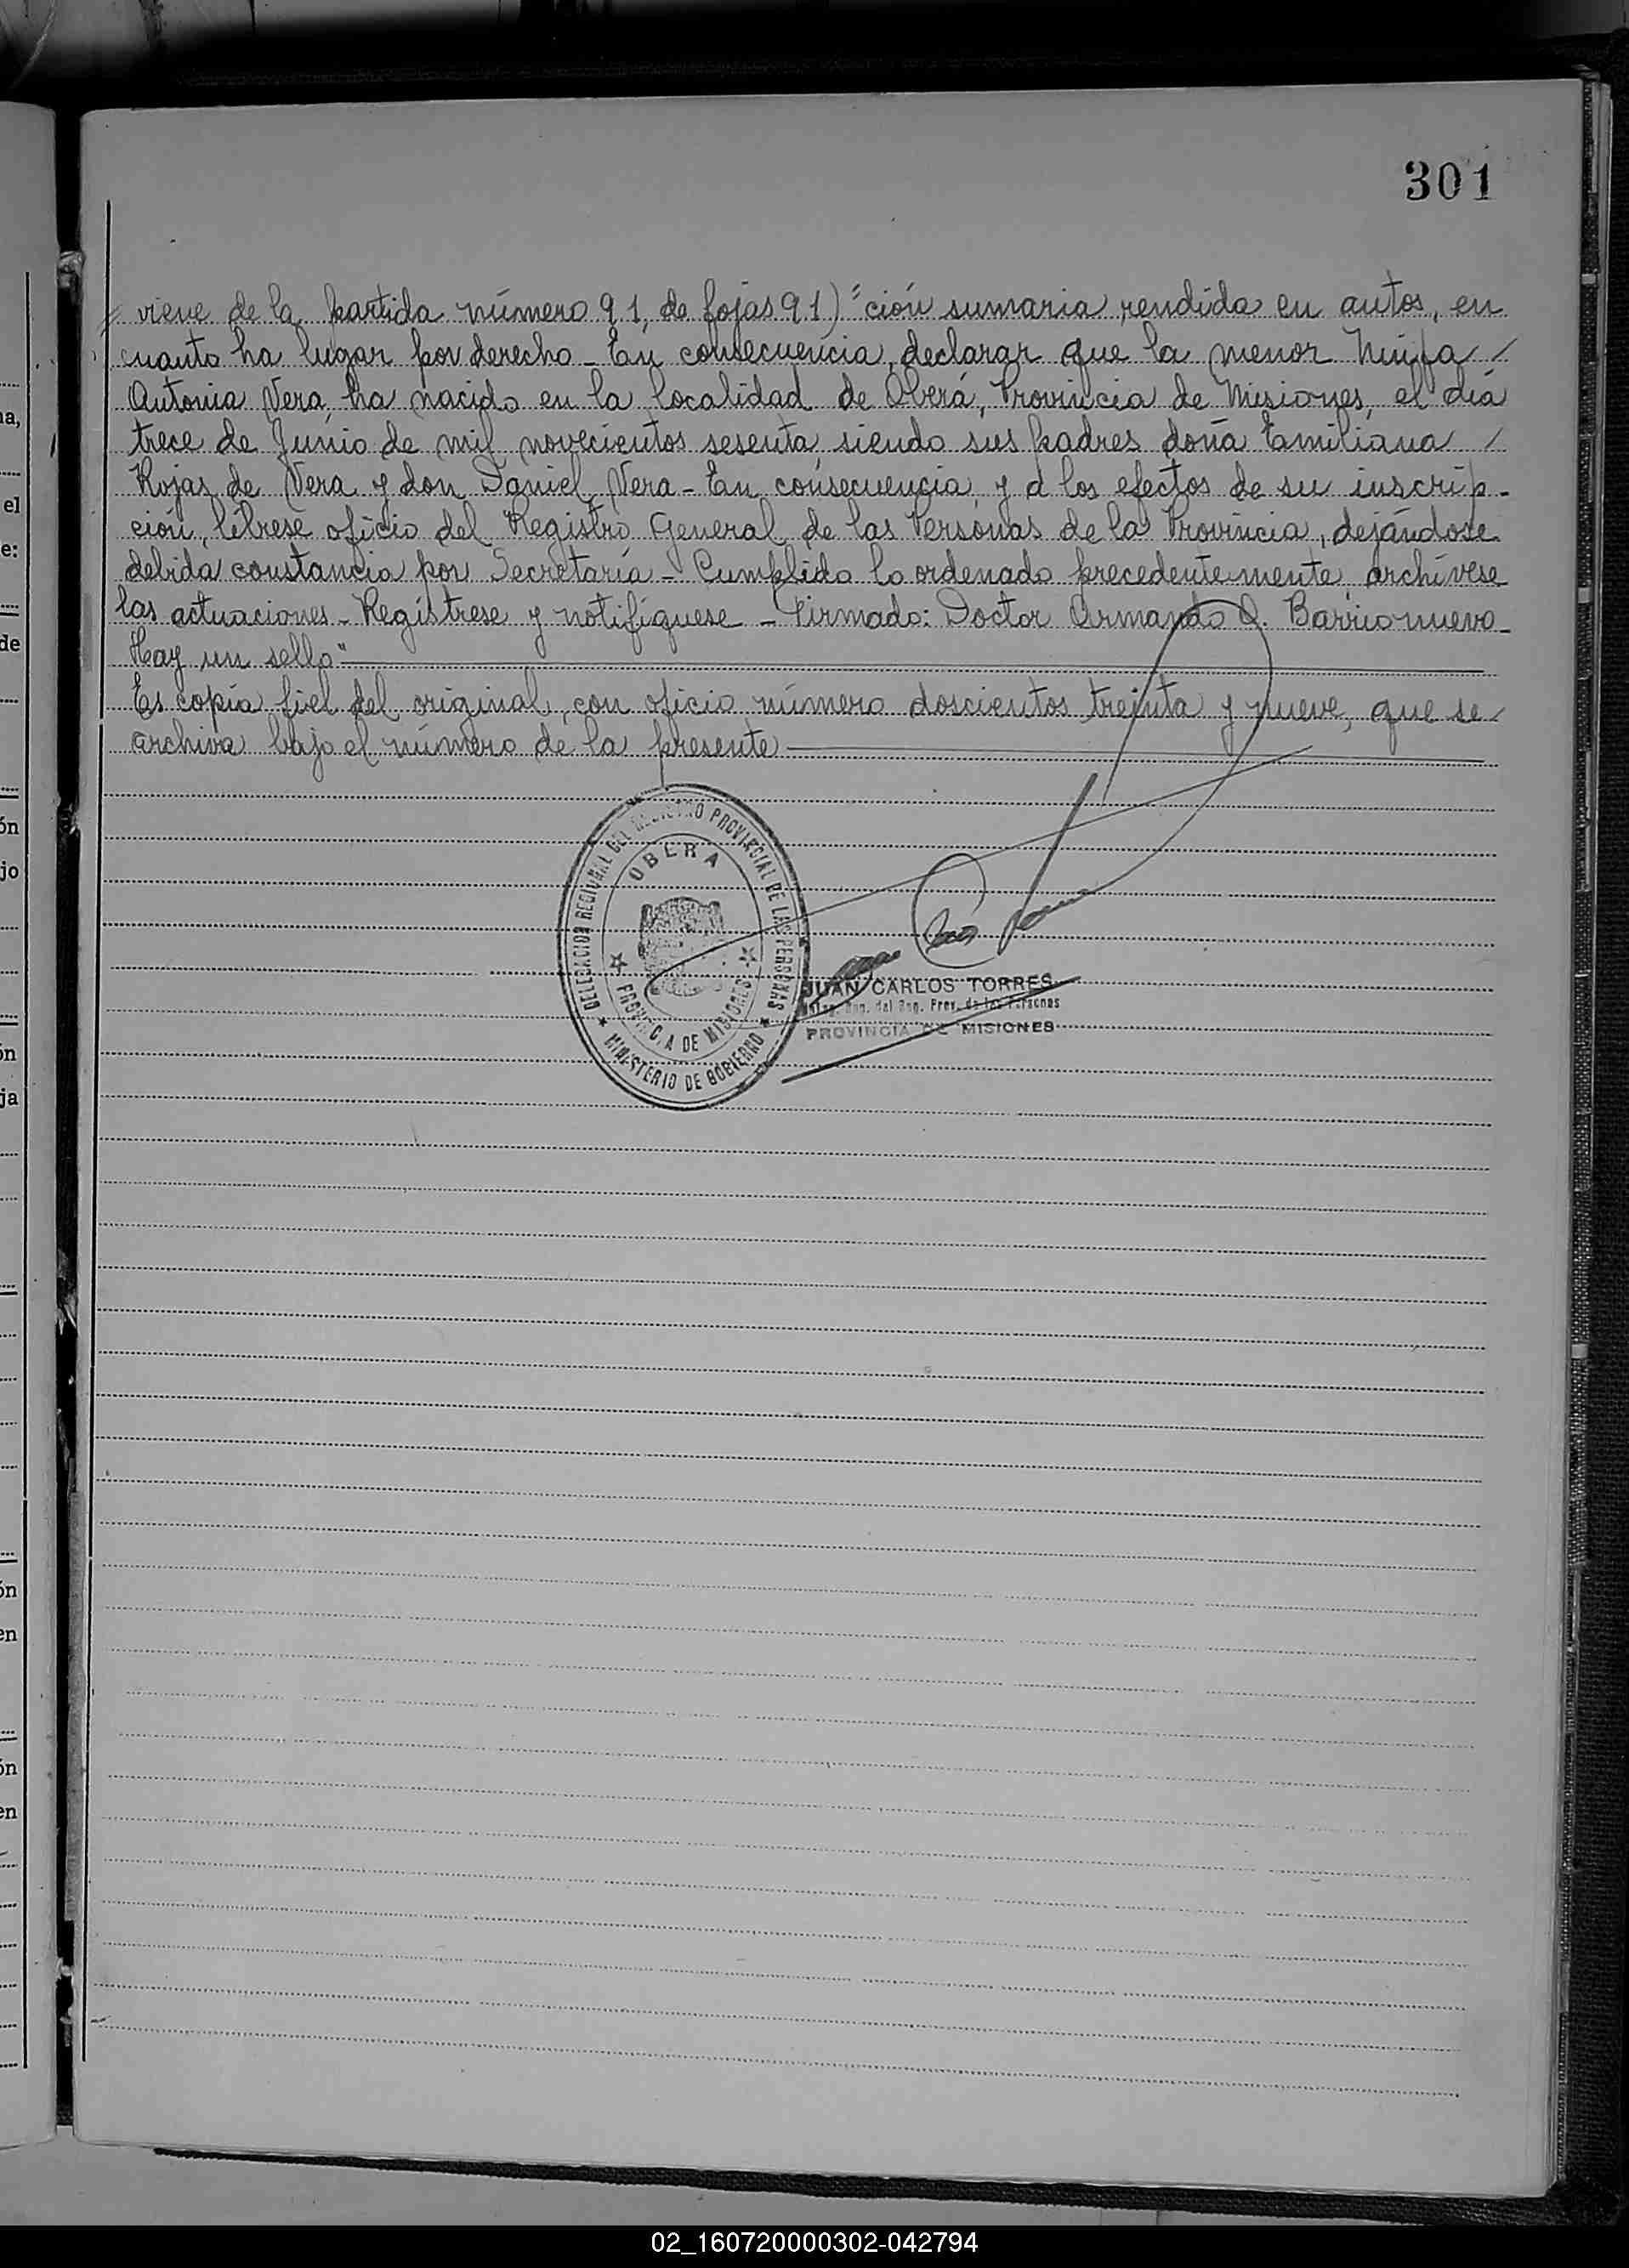 301
viene de la partida número 91, de fojas 91) "ción sumaria rendida en autos, en
cuanto ha lugar por derecho - En consecuencia, declarar que la menor Ninfa /
Antonia Vera, ha nacido en la localidad de Oberá, Provincia de Misiones, el día
trece de Junio de mil novecientos sesenta, siendo sus padres doña Emiliana /
Rojas de Vera y don Daniel Vera - En consecuencia, y a los efectos de su inscrip-
ción, líbrese oficio del Registro General de las Personas de la Provincia, dejándose
debida constancia por Secretaría - Cumplido lo ordenado precedentemente archívese
las actuaciones - Regístrese y notifíquese - Firmado: Doctor Armando Q. Barrionuevo -
Hay un sello" -
Es copia fiel del original, con oficio número doscientos treinta y nueve, que se /
archiva bajo el número de la presente -
DELEGACION REGIONAL DEL REGISTRO PROVINCIAL DE LAS PERSONAS
OBERA
PROVINCIA DE MISIONES
MINISTERIO DE GOBIERNO
JUAN CARLOS TORRES
Deleg. Reg. del Reg. Prov. de las Personas
PROVINCIA DE MISIONES
a,
el
e:
de
ón
jo
ón
ja
ón
en
ón
en
02_160720000302-042794